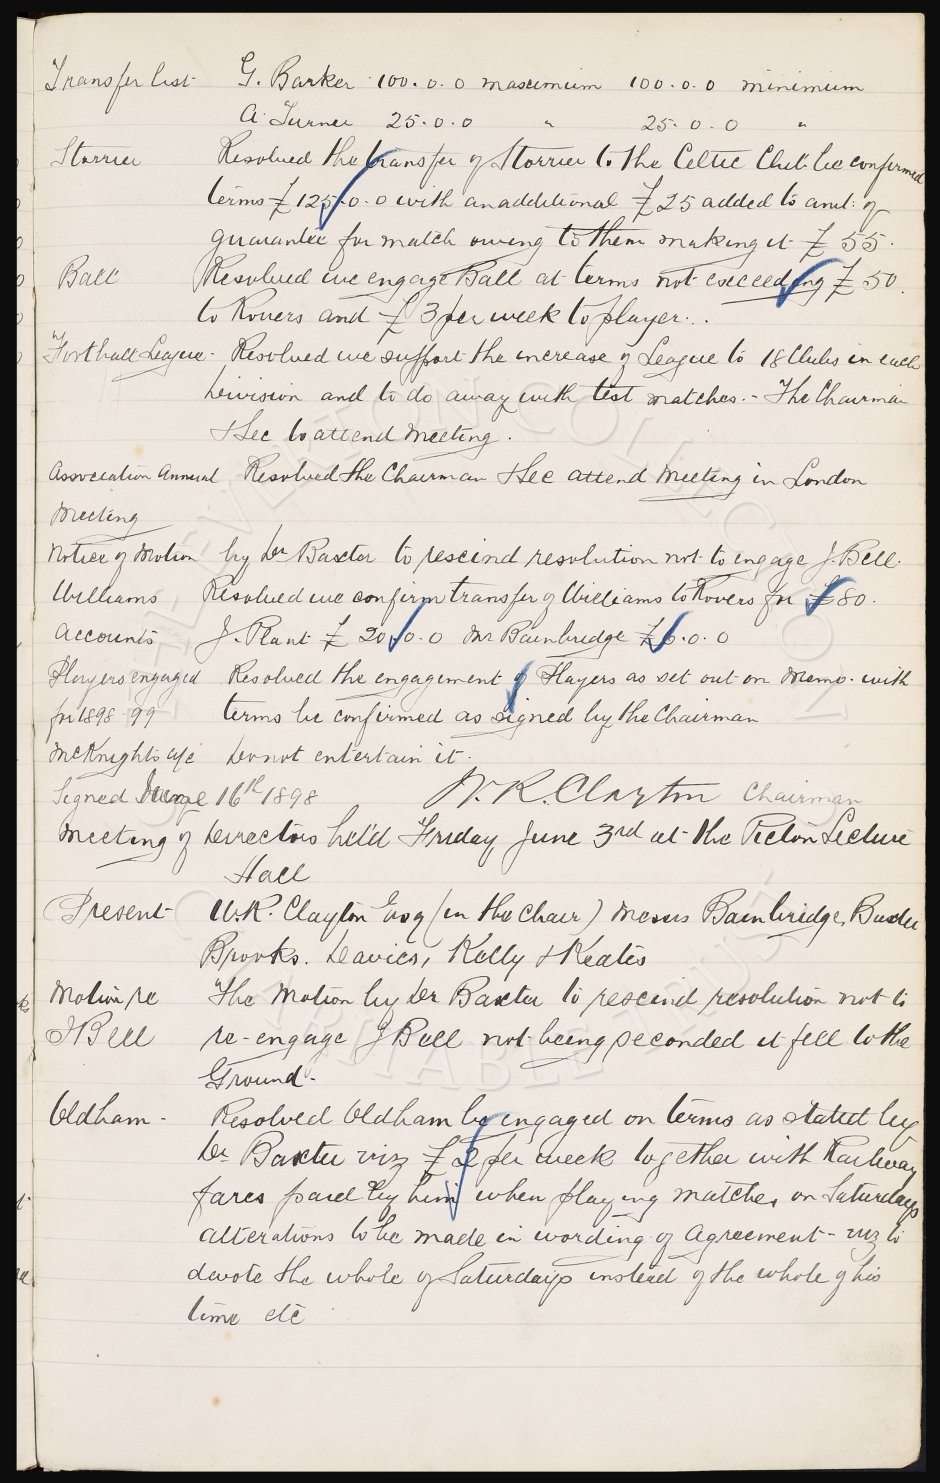 Transfer list G. Barker 100.0.0 maximum 100.0.0 minimum
A. Turner 25.0.0 " 25.0.0 "
Storrier Resolved the transfer of Storrier to the Celtic Club be confirmed
terms £125.0.0 with an additional £25 added to amt. of
guarantee for match owing to them making it £55.
Ball Resolved we engage Ball at terms not exceeding £50
to Rovers and £3 per week to player.
Football League. Resolved we support the increase of League to 18 Clubs in each
Division and to do away with test matches. - The Chairman
& Sec to attend Meeting.
Association Annual Resolved the Chairman & Sec attend Meeting in London
Meeting
Notice of Motion by Dr Baxter to rescind resolution not to engage J. Bell.
Williams Resolved we confirm transfer of Williams to Rovers for £80.
Accounts J. Plant £20.0.0 Mr Bainbridge £6.0.0
Players engaged Resolved the engagement of Players as set out on Memo. with
for 1898-99 terms be confirmed as signed by the Chairman
McKnights a/c Do not entertain it.
Signed June 16th 1898 W. R. Clayton Chairman
Meeting of Directors held Friday June 3rd at the Picton Lecture
Hall
Present W.R. Clayton Esq (in the Chair) Messrs Bainbridge, Baxter
Brooks. Davies, Kelly & Keates
Motion re The Motion by Dr Baxter to rescind resolution not to
J Bell re-engage J Bell not being seconded it fell to the
Ground.
Oldham - Resolved Oldham be engaged on terms as stated by
Dr Baxter viz £2 per week together with Railway
fares paid by him when playing matches on Saturdays
alterations to be made in wording of Agreement - viz to
devote the whole of Saturdays instead of the whole of his
time etc
EVERTON COLLECTION
CHARITABLE TRUST